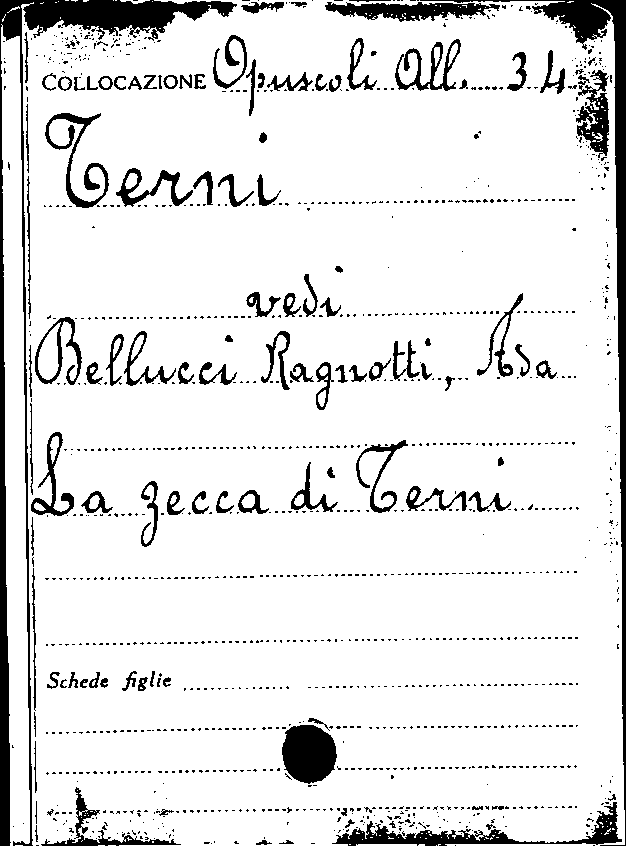 COLLOCAZIONE Opuscoli All. 34
Terni
vedi
Bellucci Ragnotti, Ada
La zecca di Terni
Schede figlie